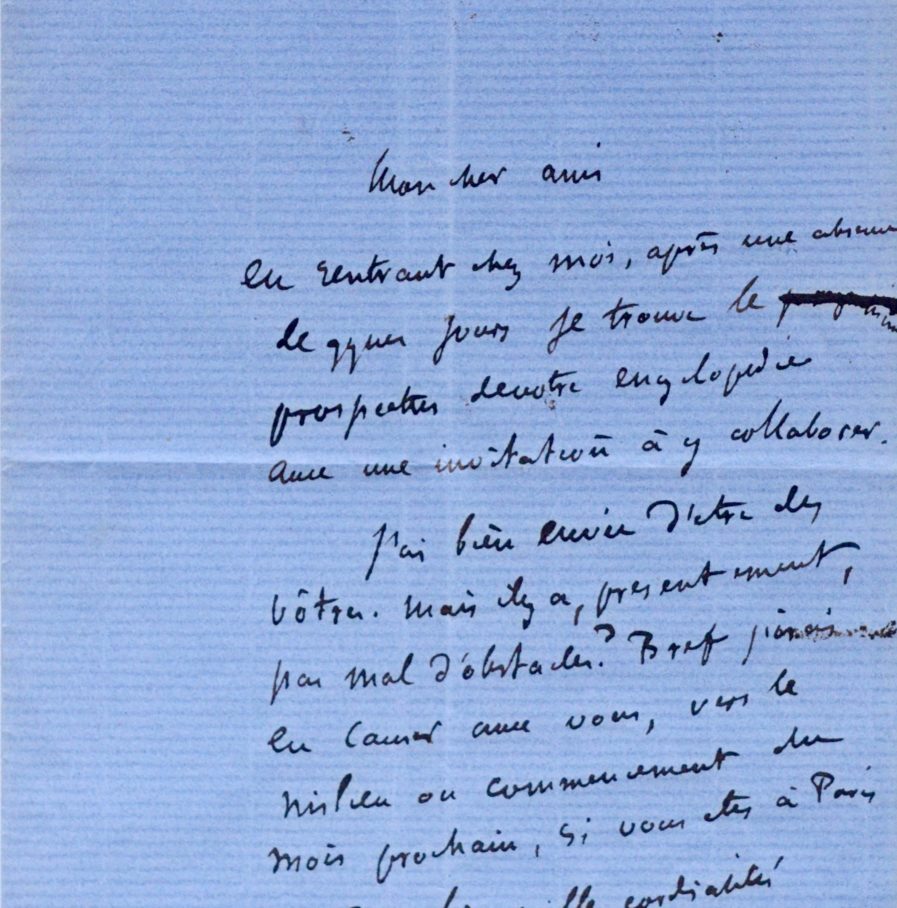 Mon cher ami
en rentrant chez moi, après une absence
de qques jours je trouve le
prospectus de votre encyclopédie
avec une invitation à y collaborer.
J'ai bien envie d'etre des
vôtres. Mais il y a, presentement,
pas mal d'obstacles? Bref j'irais
en causer avec vous, vers le
milieu ou commencement du
mois prochain, si vous etes à Paris
mille cordialités